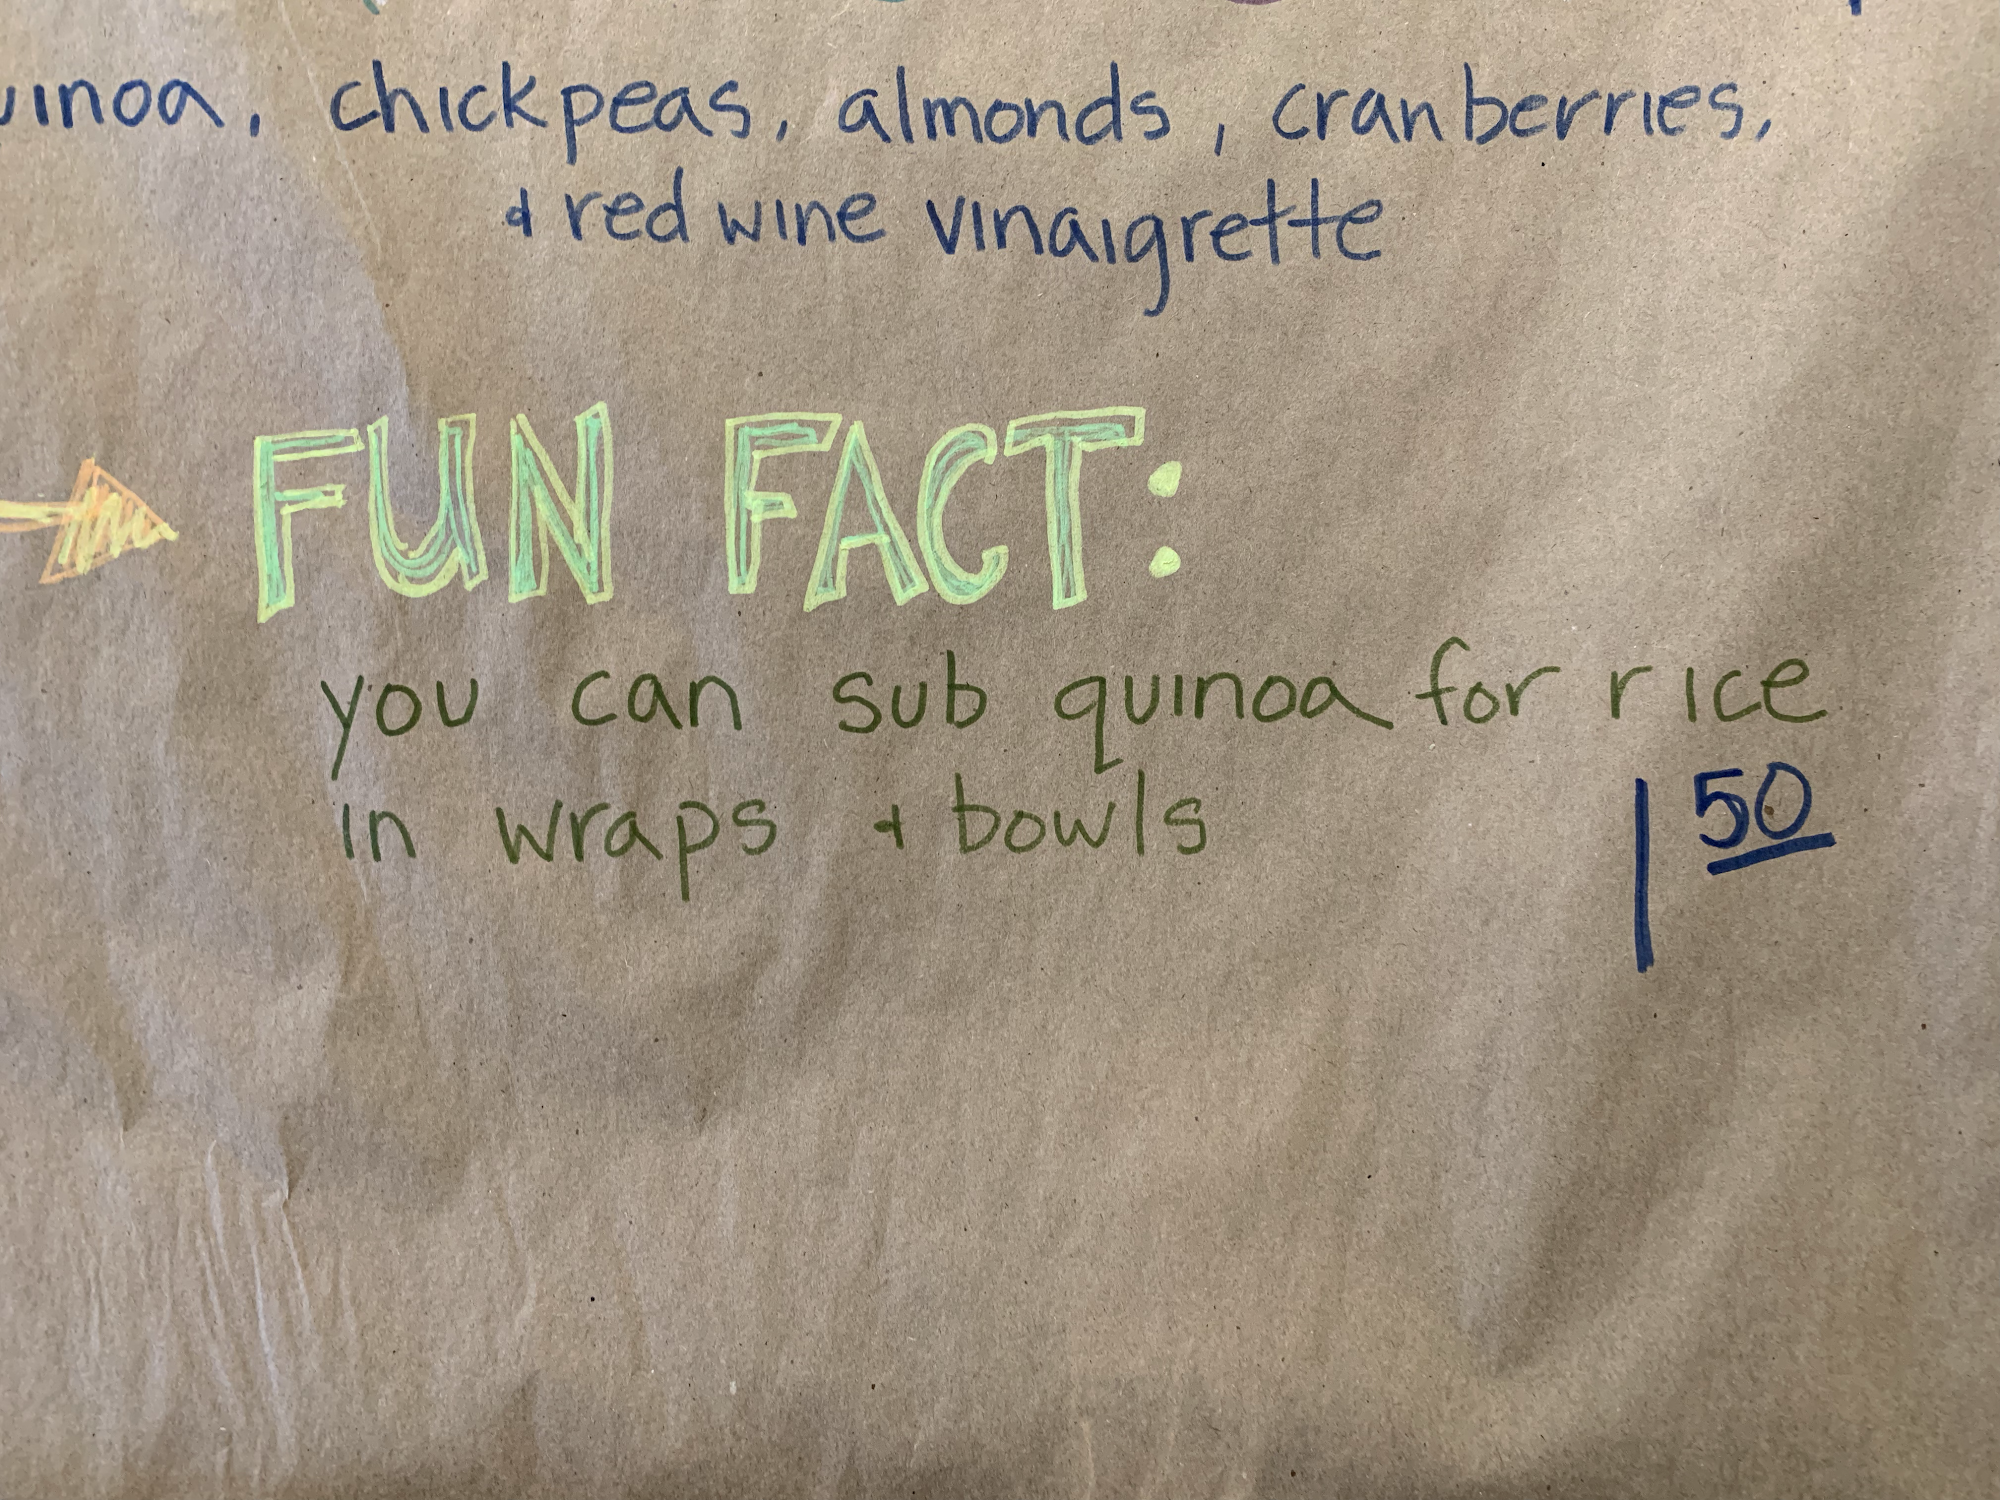 uinoa, chickpeas, almonds, cranberries,
& red wine vinaigrette
FUN FACT:
you can sub quinoa for rice
in wraps & bowls 1 50